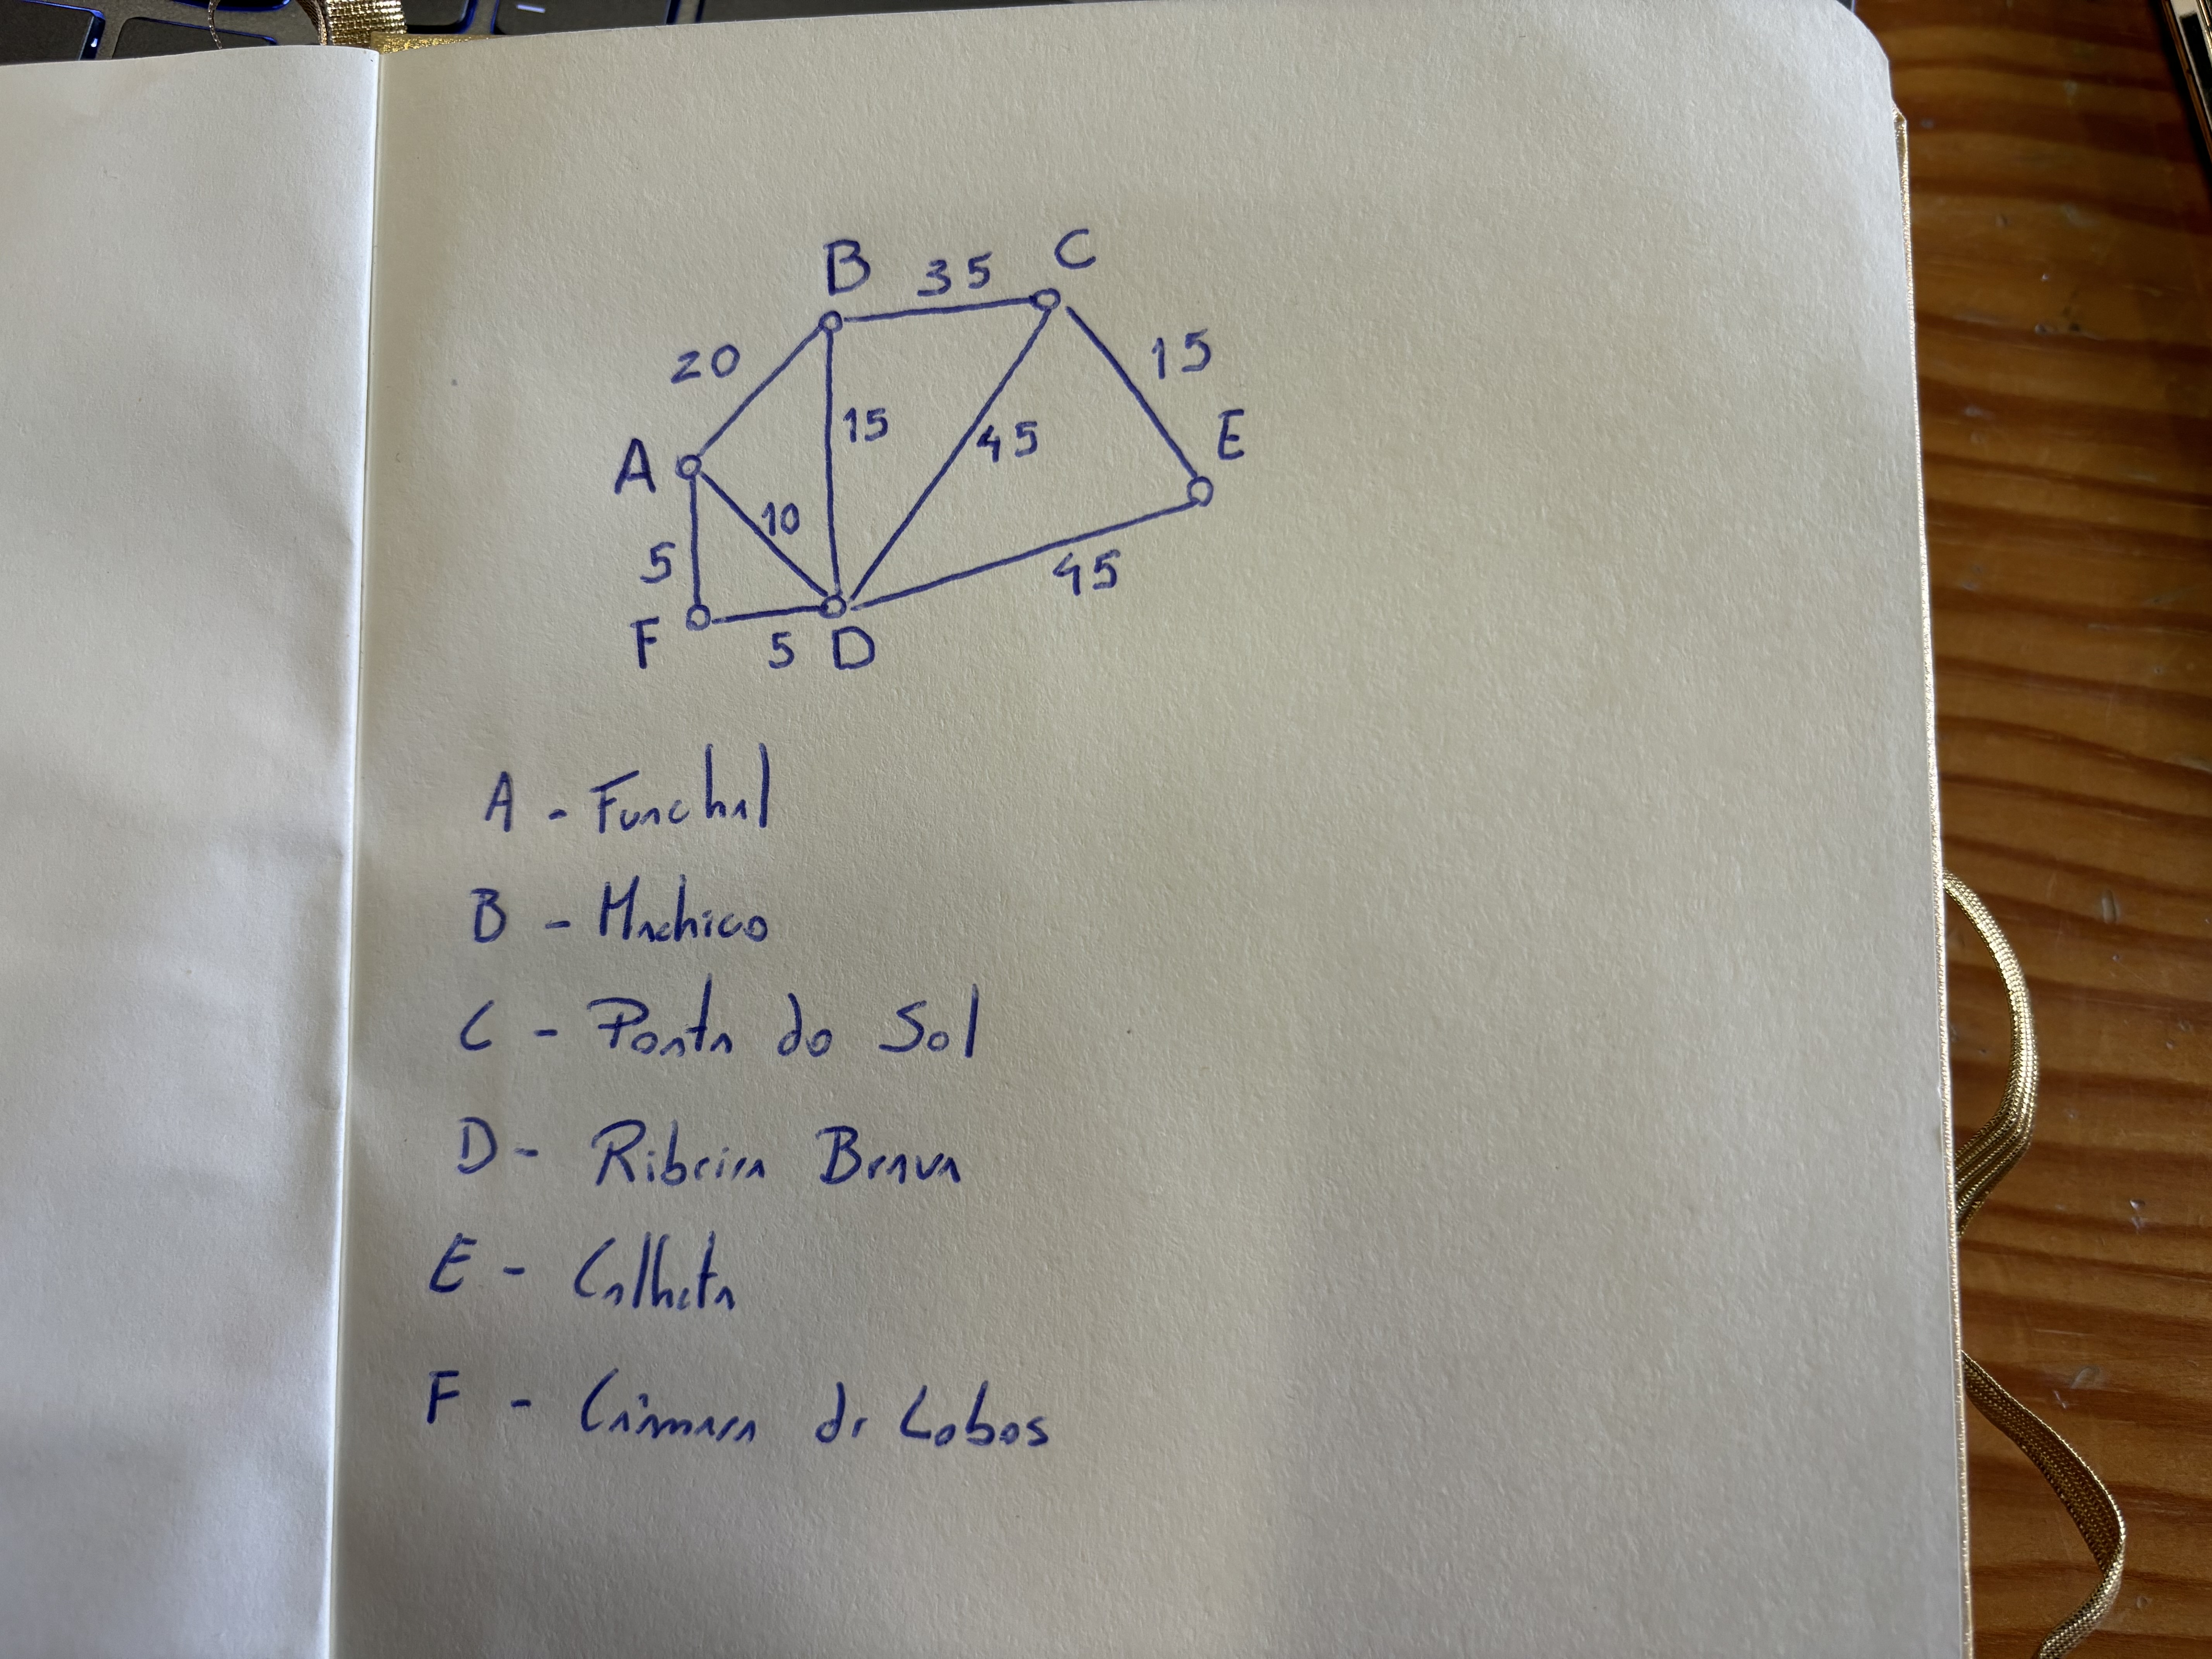 20
B
35
C
A
15
5
10
15
45
E
F
5
D
45
A - Funchal
B - Machico
C - Ponta do Sol
D - Ribeira Brava
E - Calheta
F - Câmara de Lobos